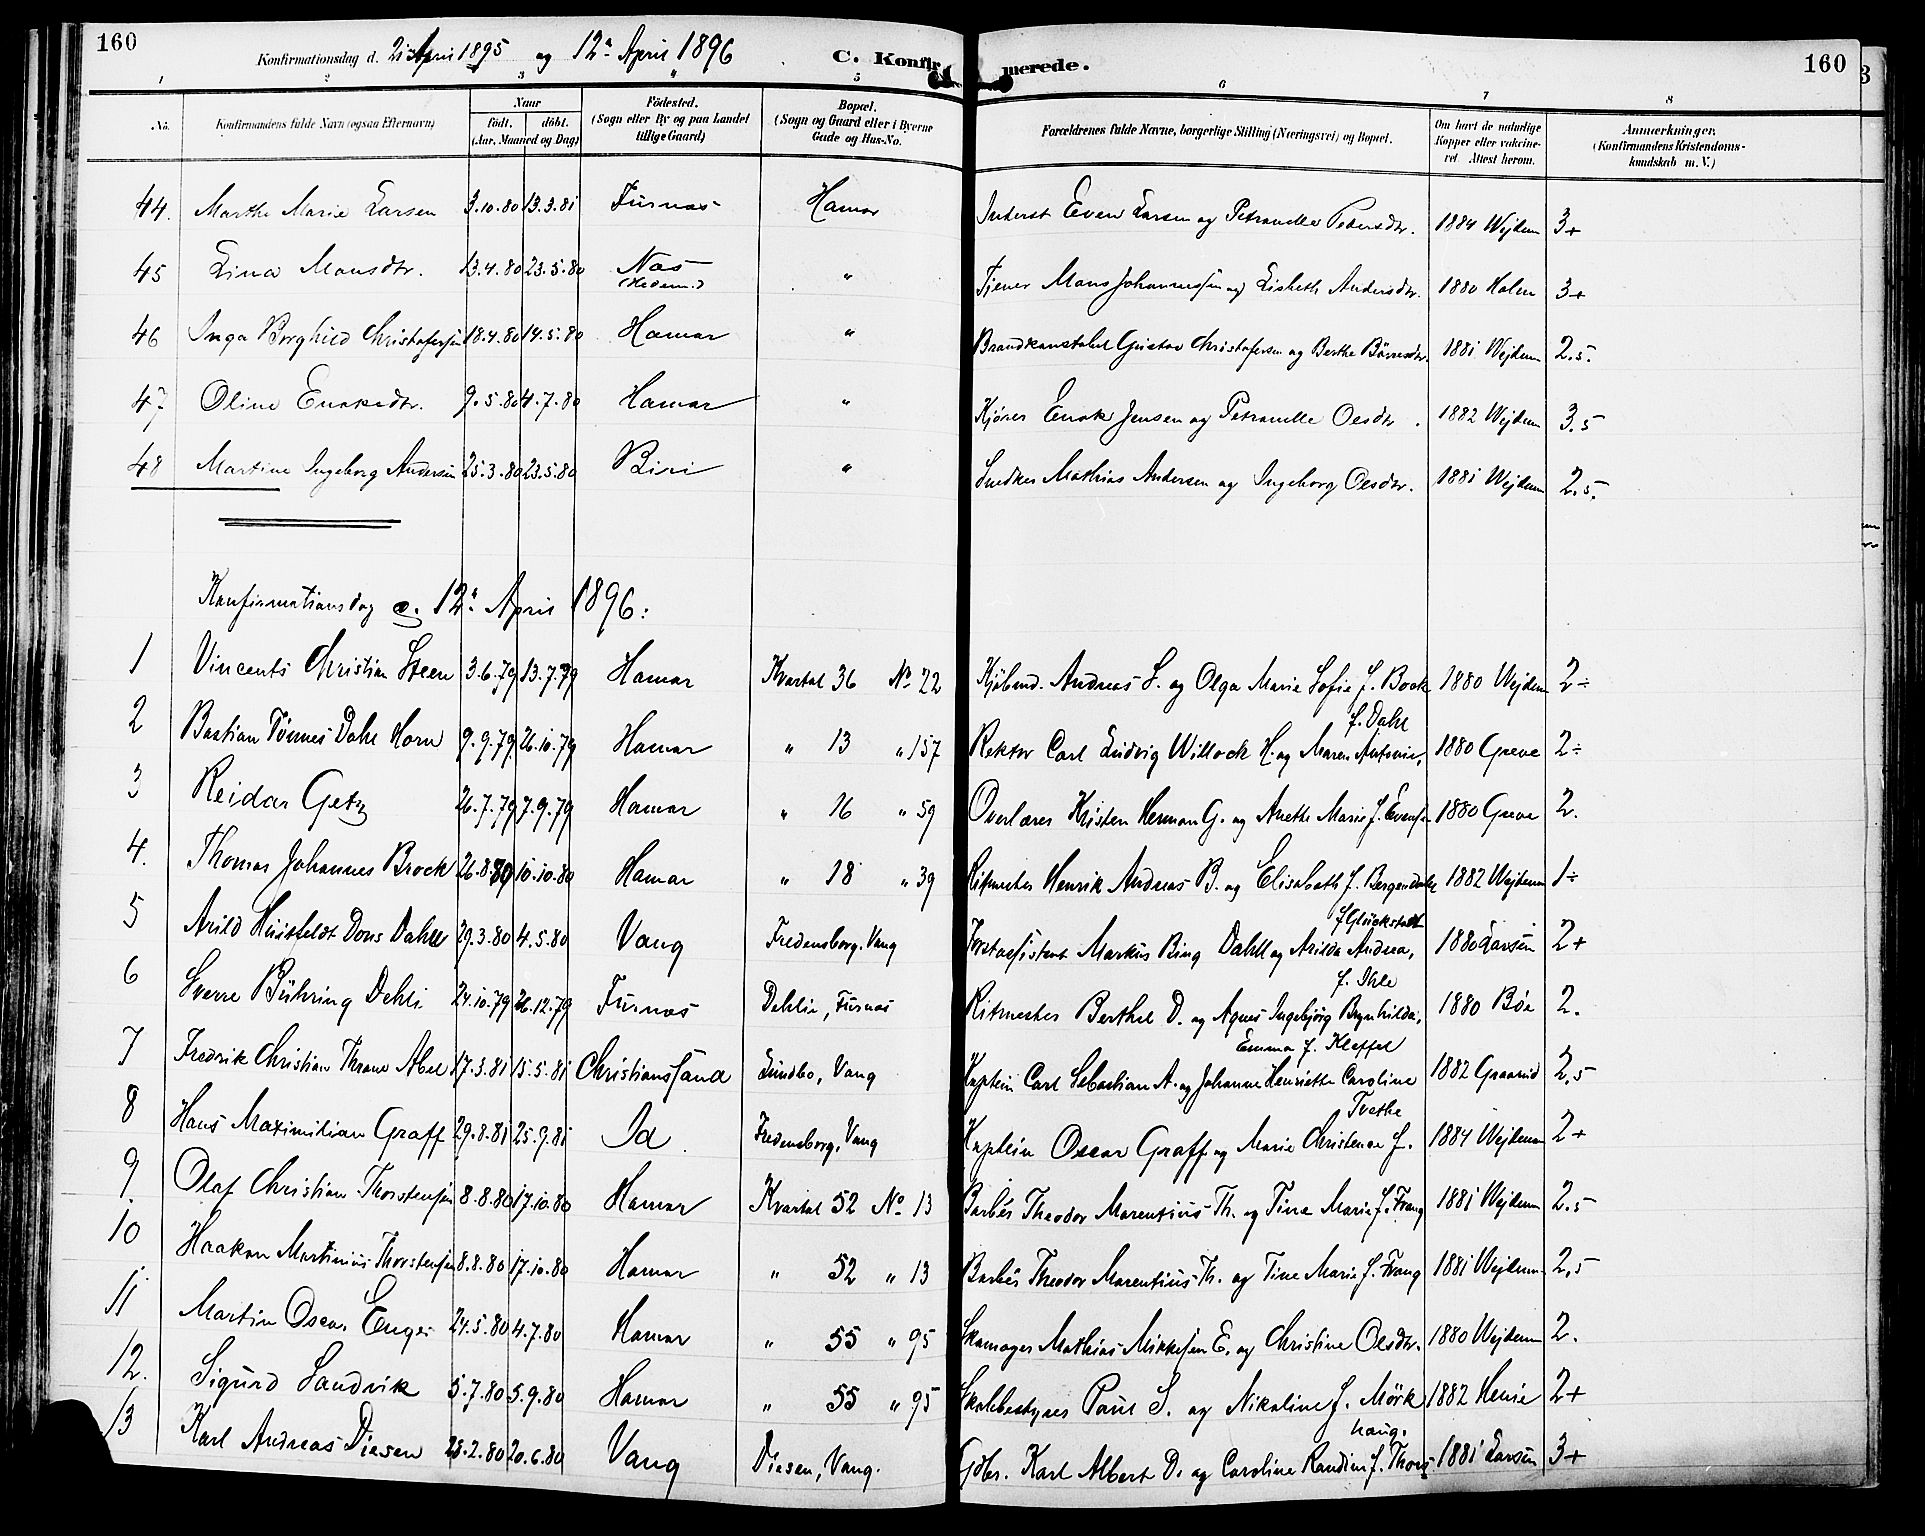 160
Konfirmationsdag d. 21 April 1895 og 12te April 1896
C. Konfir merede.
160
1 2 3 4 5 6 7 8
No.
Konfirmandens fulde Navn (ogsaa Efternavn)
Naar
födt. döbt.
(Aar, Maaned og Dag)
Födested.
(Sogn eller By og paa Landet
tillige Gaard)
Bopæl.
(Sogn og Gaard eller i Byerne
Gade og Hus-No.
Forældrenes fulde Navne, borgerlige Stilling (Næringsvei) og Bopæl.
Om havt de naturlige
Kopper eller vakcine-
ret. Attest herom.
Anmærkninger.
(Konfirmandens Kristendoms-
kundskab m. V.)
44. Marthe Marie Larsen 3.10.80 13.3.81 Furnæs Hamar Inderst Even Larsen og Petronelle Pedersdtr. 1884 Wejdem 3+
45 Lina Monsdtr. 13.4.80 23.5.80 Næs (Hedem.) " Tjener Mons Johannessen og Lisbeth Andersdtr. 1880 Holm 3+
46 Inga Borghild Christofersen 18.4.80 14.5.80 Hamar " Brandkonstabel Gustav Christofersen og Berthe Börresdtr. 1881 Wejdem 2.5.
47 Oline Enoksdtr. 9.5.80 4.7.80 Hamar " Kjörer Enok Jensen og Petronelle Olsdtr. 1882 Wejdem 3.5
48 Martine Ingeborg Andersen 25.3.80 23.5.80 Biri " Snedker Mathias Andersen og Ingeborg Olsdtr. 1881 Wejdem 2.5.
Konfirmationsdag d. 12te April 1896:
1 Vincents Christian Steen 3.6.79 13.7.79 Hamar Kvartal 36 No 22 Kjöbmd. Andreas S. og Olga Marie Sofie f. Bock 1880 Wejdem 2÷
2 Bastian Tönnes Dahl Horn 9.9.79 26.10.79 Hamar " 13 " 157 Rektor Carl Ludvig Willoch H. og Maren Antonie, f. Dahl 1880 Greve 2÷
3 Reidar Getz 26.7.79 7.9.79 Hamar " 16 " 59 Overlærer Kristen Herman G. og Anette Marie f. Evensen 1880 Greve 2.
4. Thomas Johannes Brock 26.8.80 10.10.80 Hamar " 18 " 39 Ritmester Henrik Andreas B. og Elisabeth f. Bergendahl 1882 Wejdem 1÷
5 Arild Huitfeldt Dons Dahll 29.3.80 4.5.80 Vang Fredensborg, Vang Forstassistent Markus Bing Dahll og Arilda Andrea, f. Glückstadt 1880 Larsen 2+
6 Sverre Bühring Dehli 24.10.79 26.12.79 Furnæs Dehlie, Furnæs Ritmester Berthel D. og Agnes Ingebjörg Brynhilda, f. Ihle 1880 Böe 2.
7 Fredrik Christian Thrane Abel 17.3.81 15.5.81 Christianssand Sundbo, Vang Kaptein Carl Sebastian A. og Johanne Henriette Caroline Emma f. Kleffel 1882 2,5
8 Hans Maximilian Graff 29.8.81 25.9.81 Id Fredensborg, Vang Kaptein Oscar Graff og Marie Christence f. Tvethe 1884 Wejdem 2+
9 Olaf Christian Thorstensen 8.8.80 17.10.80 Hamar Kvartal 52 No 13 Barbér Theodor Marentius Th. og Tine Marie f. Frang 1881 Wejdem 2.5
10 Haakon Martinius Thorstensen 8.8.80 17.10.80 Hamar " 52 " 13 Barbér Theodor Marentius Th. og Tine Marie f. Frang 1881 Wejdem 2,5
11 Martin Oscar Enger 24.5.80 4.7.80 Hamar " 55 " 95 Skomager Mathias Mikkelsen E. og Christine Olsdtr. 1880 Wejdem 2.
12. Sigurd Sandvik 5.7.80 5.9.80 Hamar " 55 " 95 Skolebestyrer Paul S. og Nikoline f. Mörk 1882 Henie 2+
13 Karl Andreas Diesen 28.2.80 20.6.80 Vang Diesen, Vang. Gdbr. Karl Albert D. og Caroline Randine f. Thorshaug. 1881 Larsen 3+